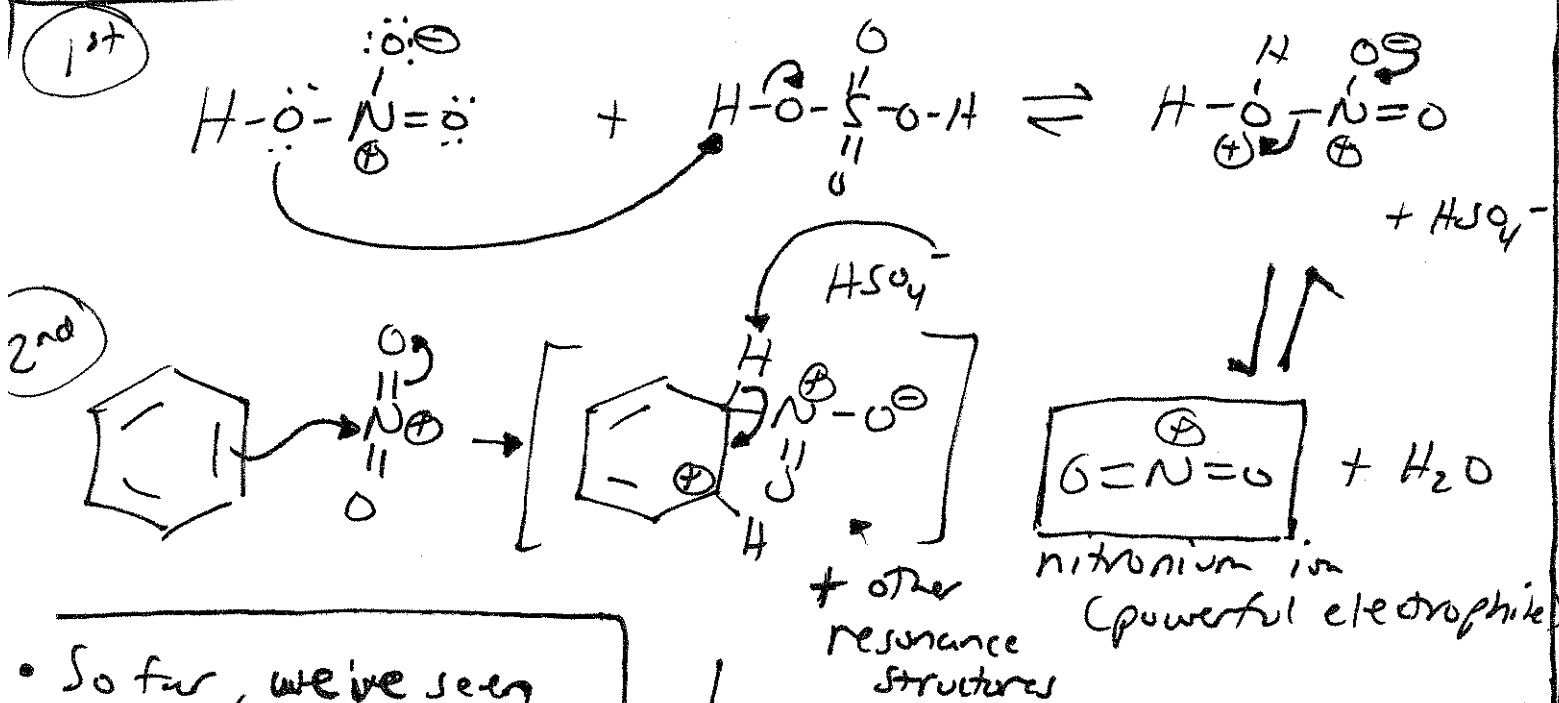 1st
:Ö:⊖
H-Ö-N=Ö + H-O-S-O-H ⇌ H-O-N=O
⊕
O
O
H O⊖
⊕ ⊕
+ HSO4-
HSO4-
2nd
O
N⊕
O
→
H
⊕
N-O⊖
O
⊕
H
⊕
O=N=O + H2O
nitronium ion
(powerful electrophile
+ other
resonance
structures
• So far, we've seen